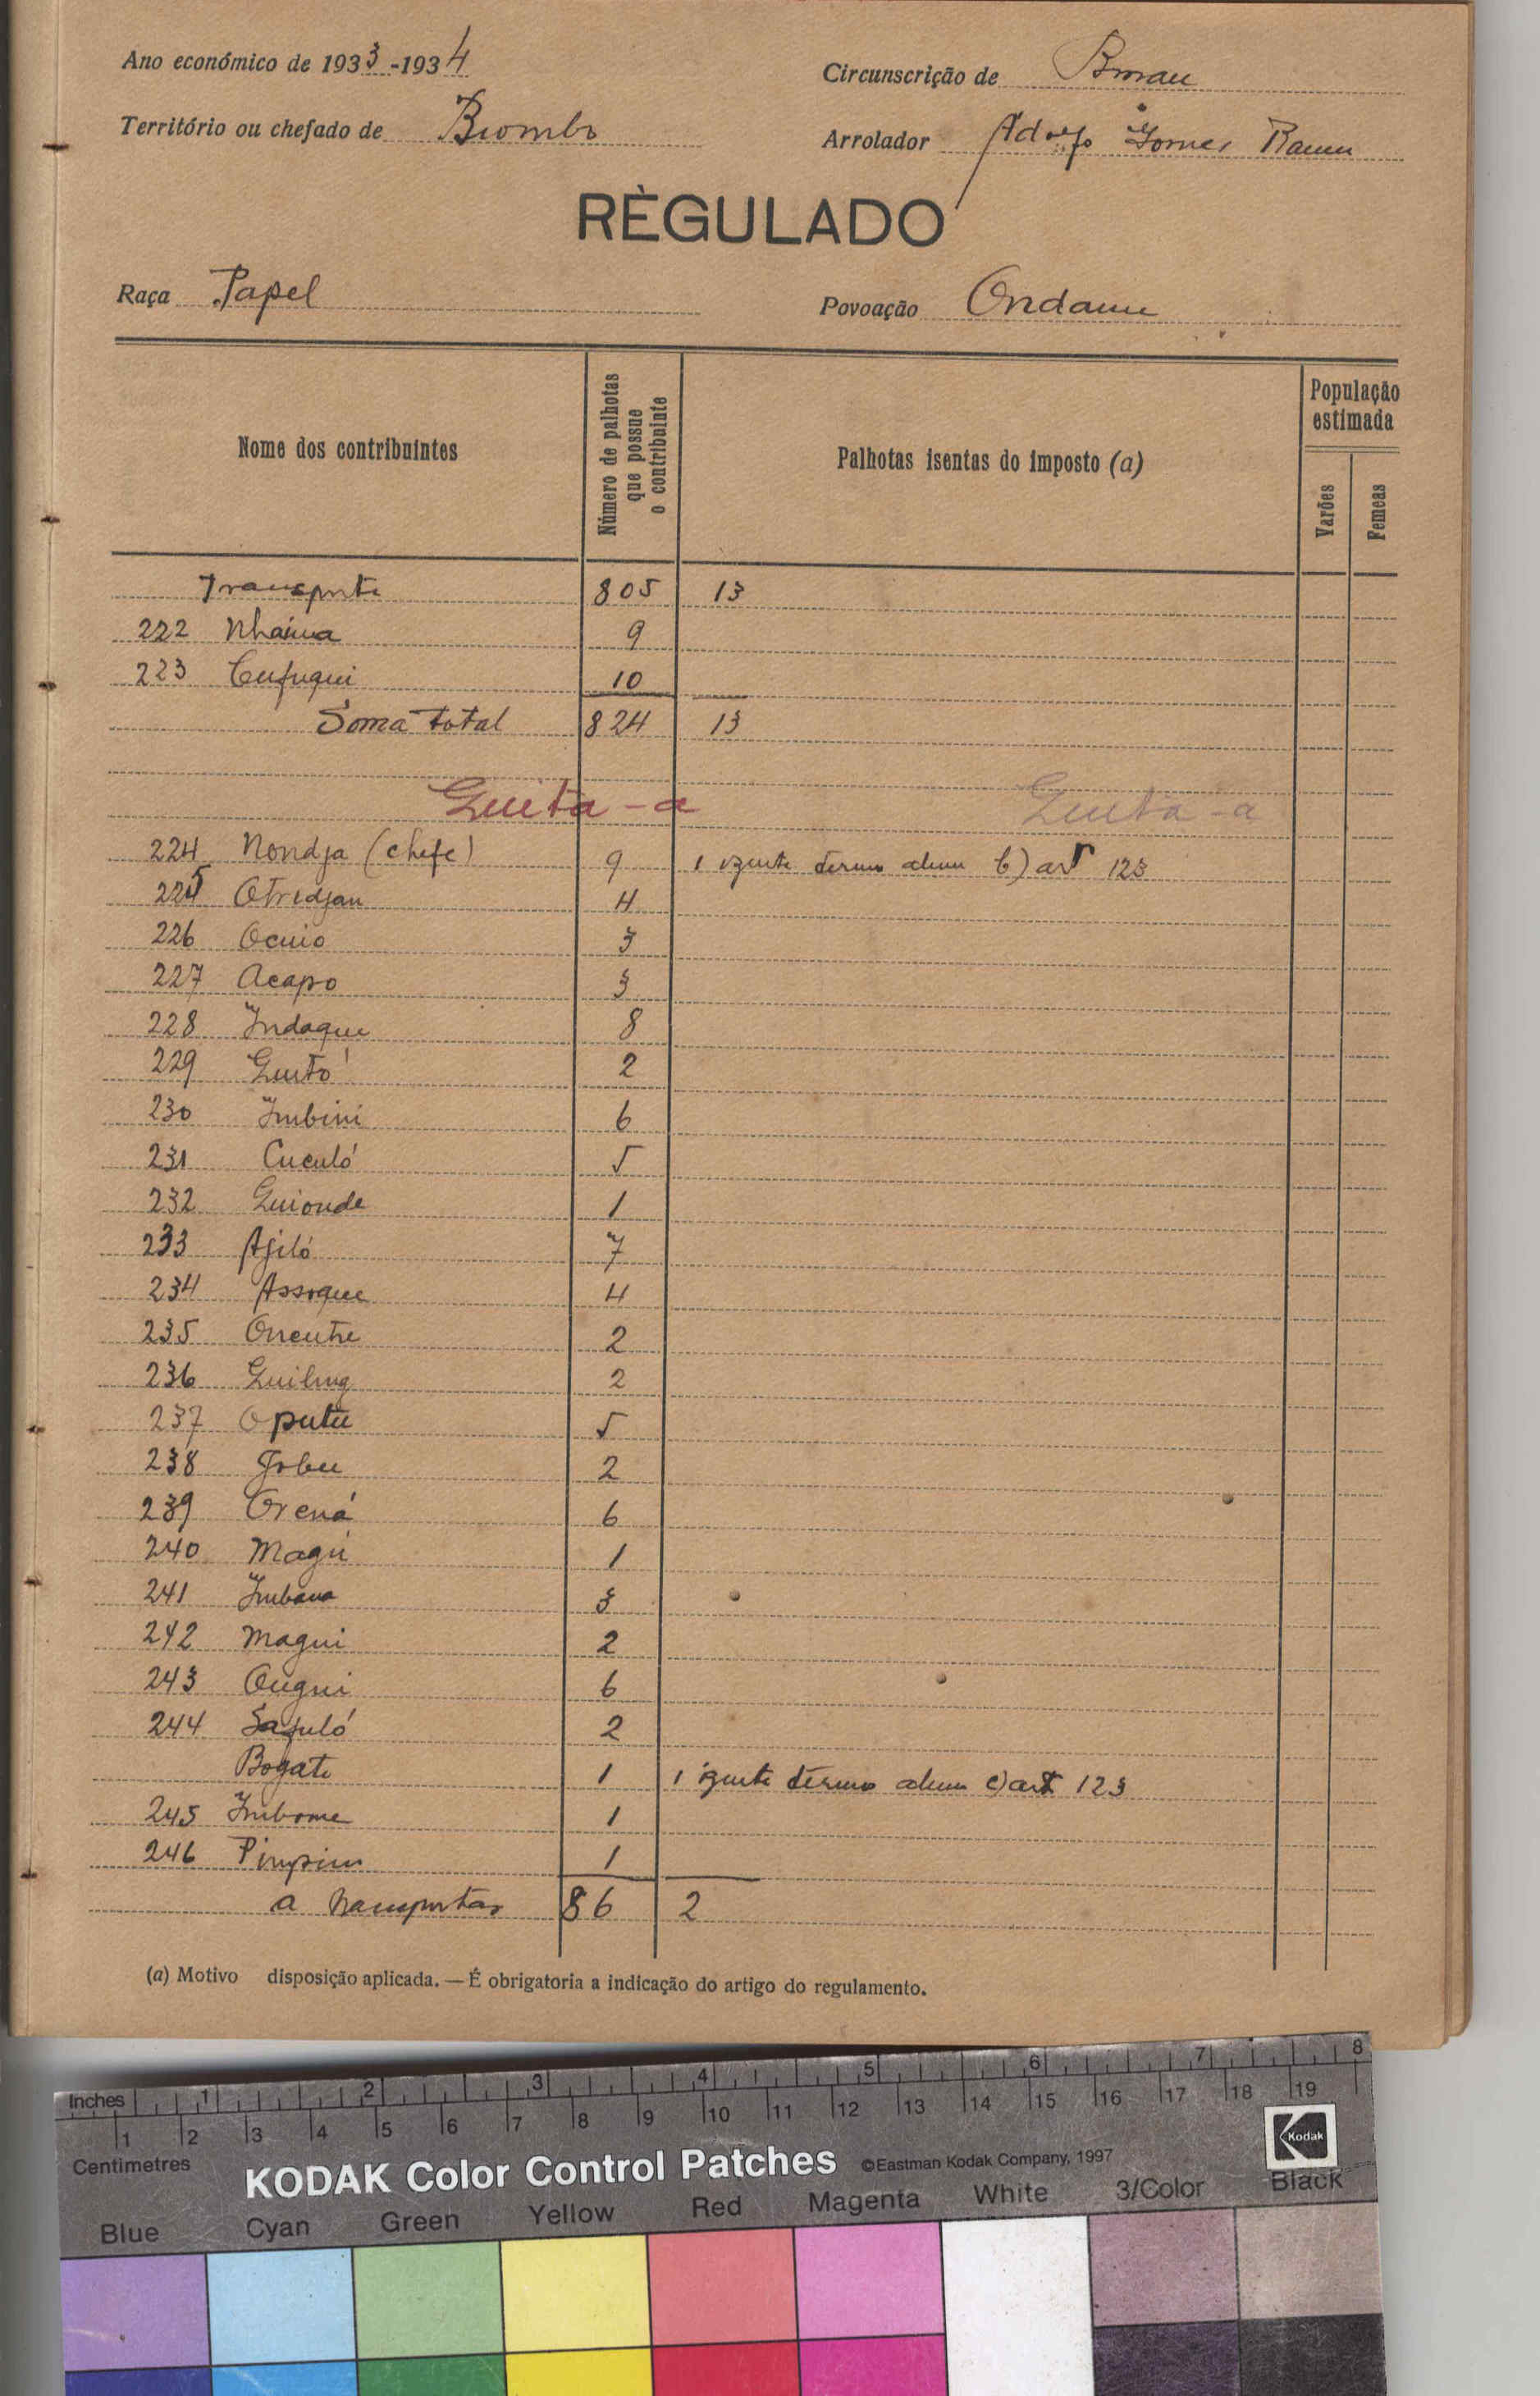 Ano económico de 1933-1934
Circunscrição de
Território ou chefado de Biombo
Arrolador Adolfo Gomes
RÈGULADO
Raça Papel
Povoação Ondame
Nome dos contribuintes
Número de palhotas que possue o contribuinte
Palhotas isentas do imposto (a)
População estimada
Varões
Femeas
Transporte 805 13
222 Nhaiua 9
223 Cufuqui 10
Soma total 824 13
Quita-a Quita-a
224 Nondja (chefe) 9 1 izente termo alinea b) art 123
225 Otredjan 4
226 Ocuio 3
227 Acapo 3
228 Indaque 8
229 Quitó 2
230 Imbini 6
231 Cuculó 5
232 Quionde 1
233 Ajiló 7
234 Assoque 4
235 Oncutre 2
236 2
237 Oputu 5
238 2
239 Orená 6
240 Magú 1
241 Imbana 3
242 Magui 2
243 Ougui 6
244 Safuló 2
Bogate 1 1 izente termo alinea c) art 123
245 Imbome 1
246 Pimpim 1
a transportar 86 2
(a) Motivo disposição aplicada. — É obrigatoria a indicação do artigo do regulamento.
Inches 1 2 3 4 5 6 7 8
1 2 3 4 5 6 7 8 9 10 11 12 13 14 15 16 17 18 19
Centimetres
KODAK Color Control Patches ©Eastman Kodak Company, 1997 Kodak
Blue Cyan Green Yellow Red Magenta White 3/Color Black